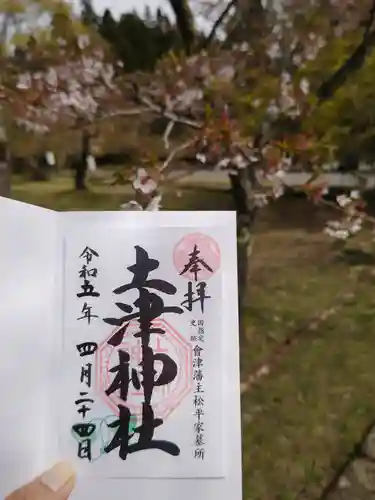 奉拝
国指定
史跡
會津藩主松平家墓所
土津神社
令和五年 四月二十四日